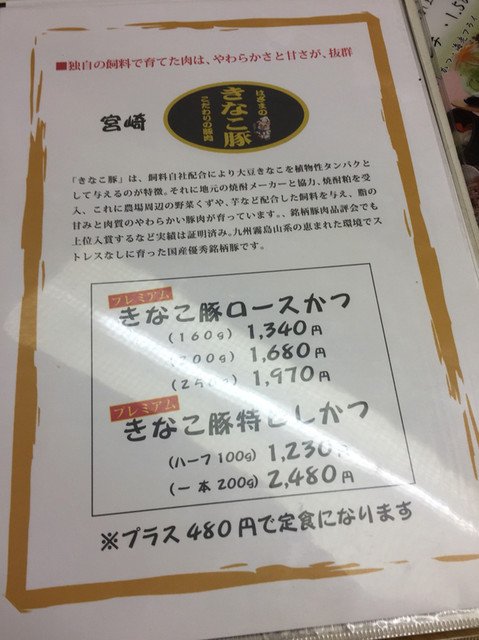 ■独自の飼料で育てた肉は、やわらかさと甘さが、抜群
宮崎
はざまの
きなこ豚
こだわりの豚肉
「きなこ豚」は、飼料自社配合により大豆きなこを植物性タンパクと
して与えるのが特徴。それに地元の焼酎メーカーと協力、焼酎粕を受
入、これに農場周辺の野菜くずや、芋など配合した飼料を与え、脂の
甘みと肉質のやわらかい豚肉が育っています。、銘柄豚肉品評会でも
上位入賞するなど実績は証明済み。九州霧島山系の恵まれた環境でス
トレスなしに育った国産優秀銘柄豚です。
プレミアム
きなこ豚ロースかつ
(160g) 1,340円
(200g) 1,680円
(250g) 1,970円
プレミアム
きなこ豚特ヒレかつ
(ハーフ100g) 1,230円
(一本200g) 2,480円
※プラス480円で定食になります